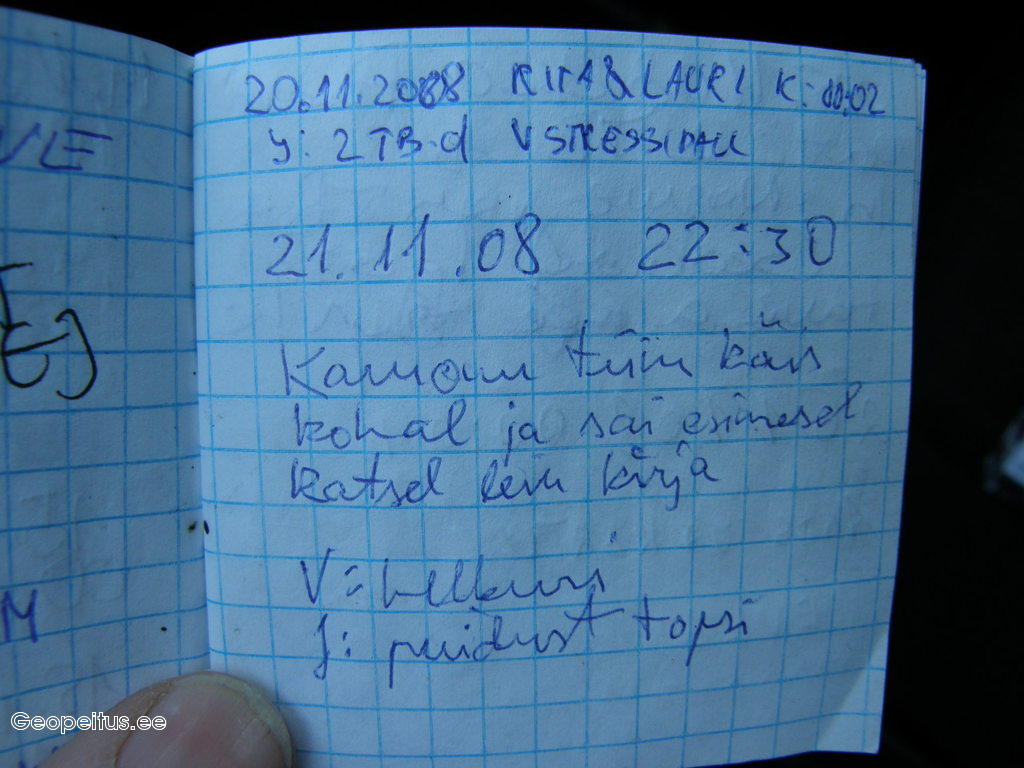 20.11.2008 RITA & LAURI K: 00:02
J: 2 TB-d V STRESSIPALL
21.11.08 22:30
tiim käis
kohal ja sai esimesel
katsel leiu kirja
V: helkuri
J: puidust topsi
VE
EJ
M
Geopeitus.ee